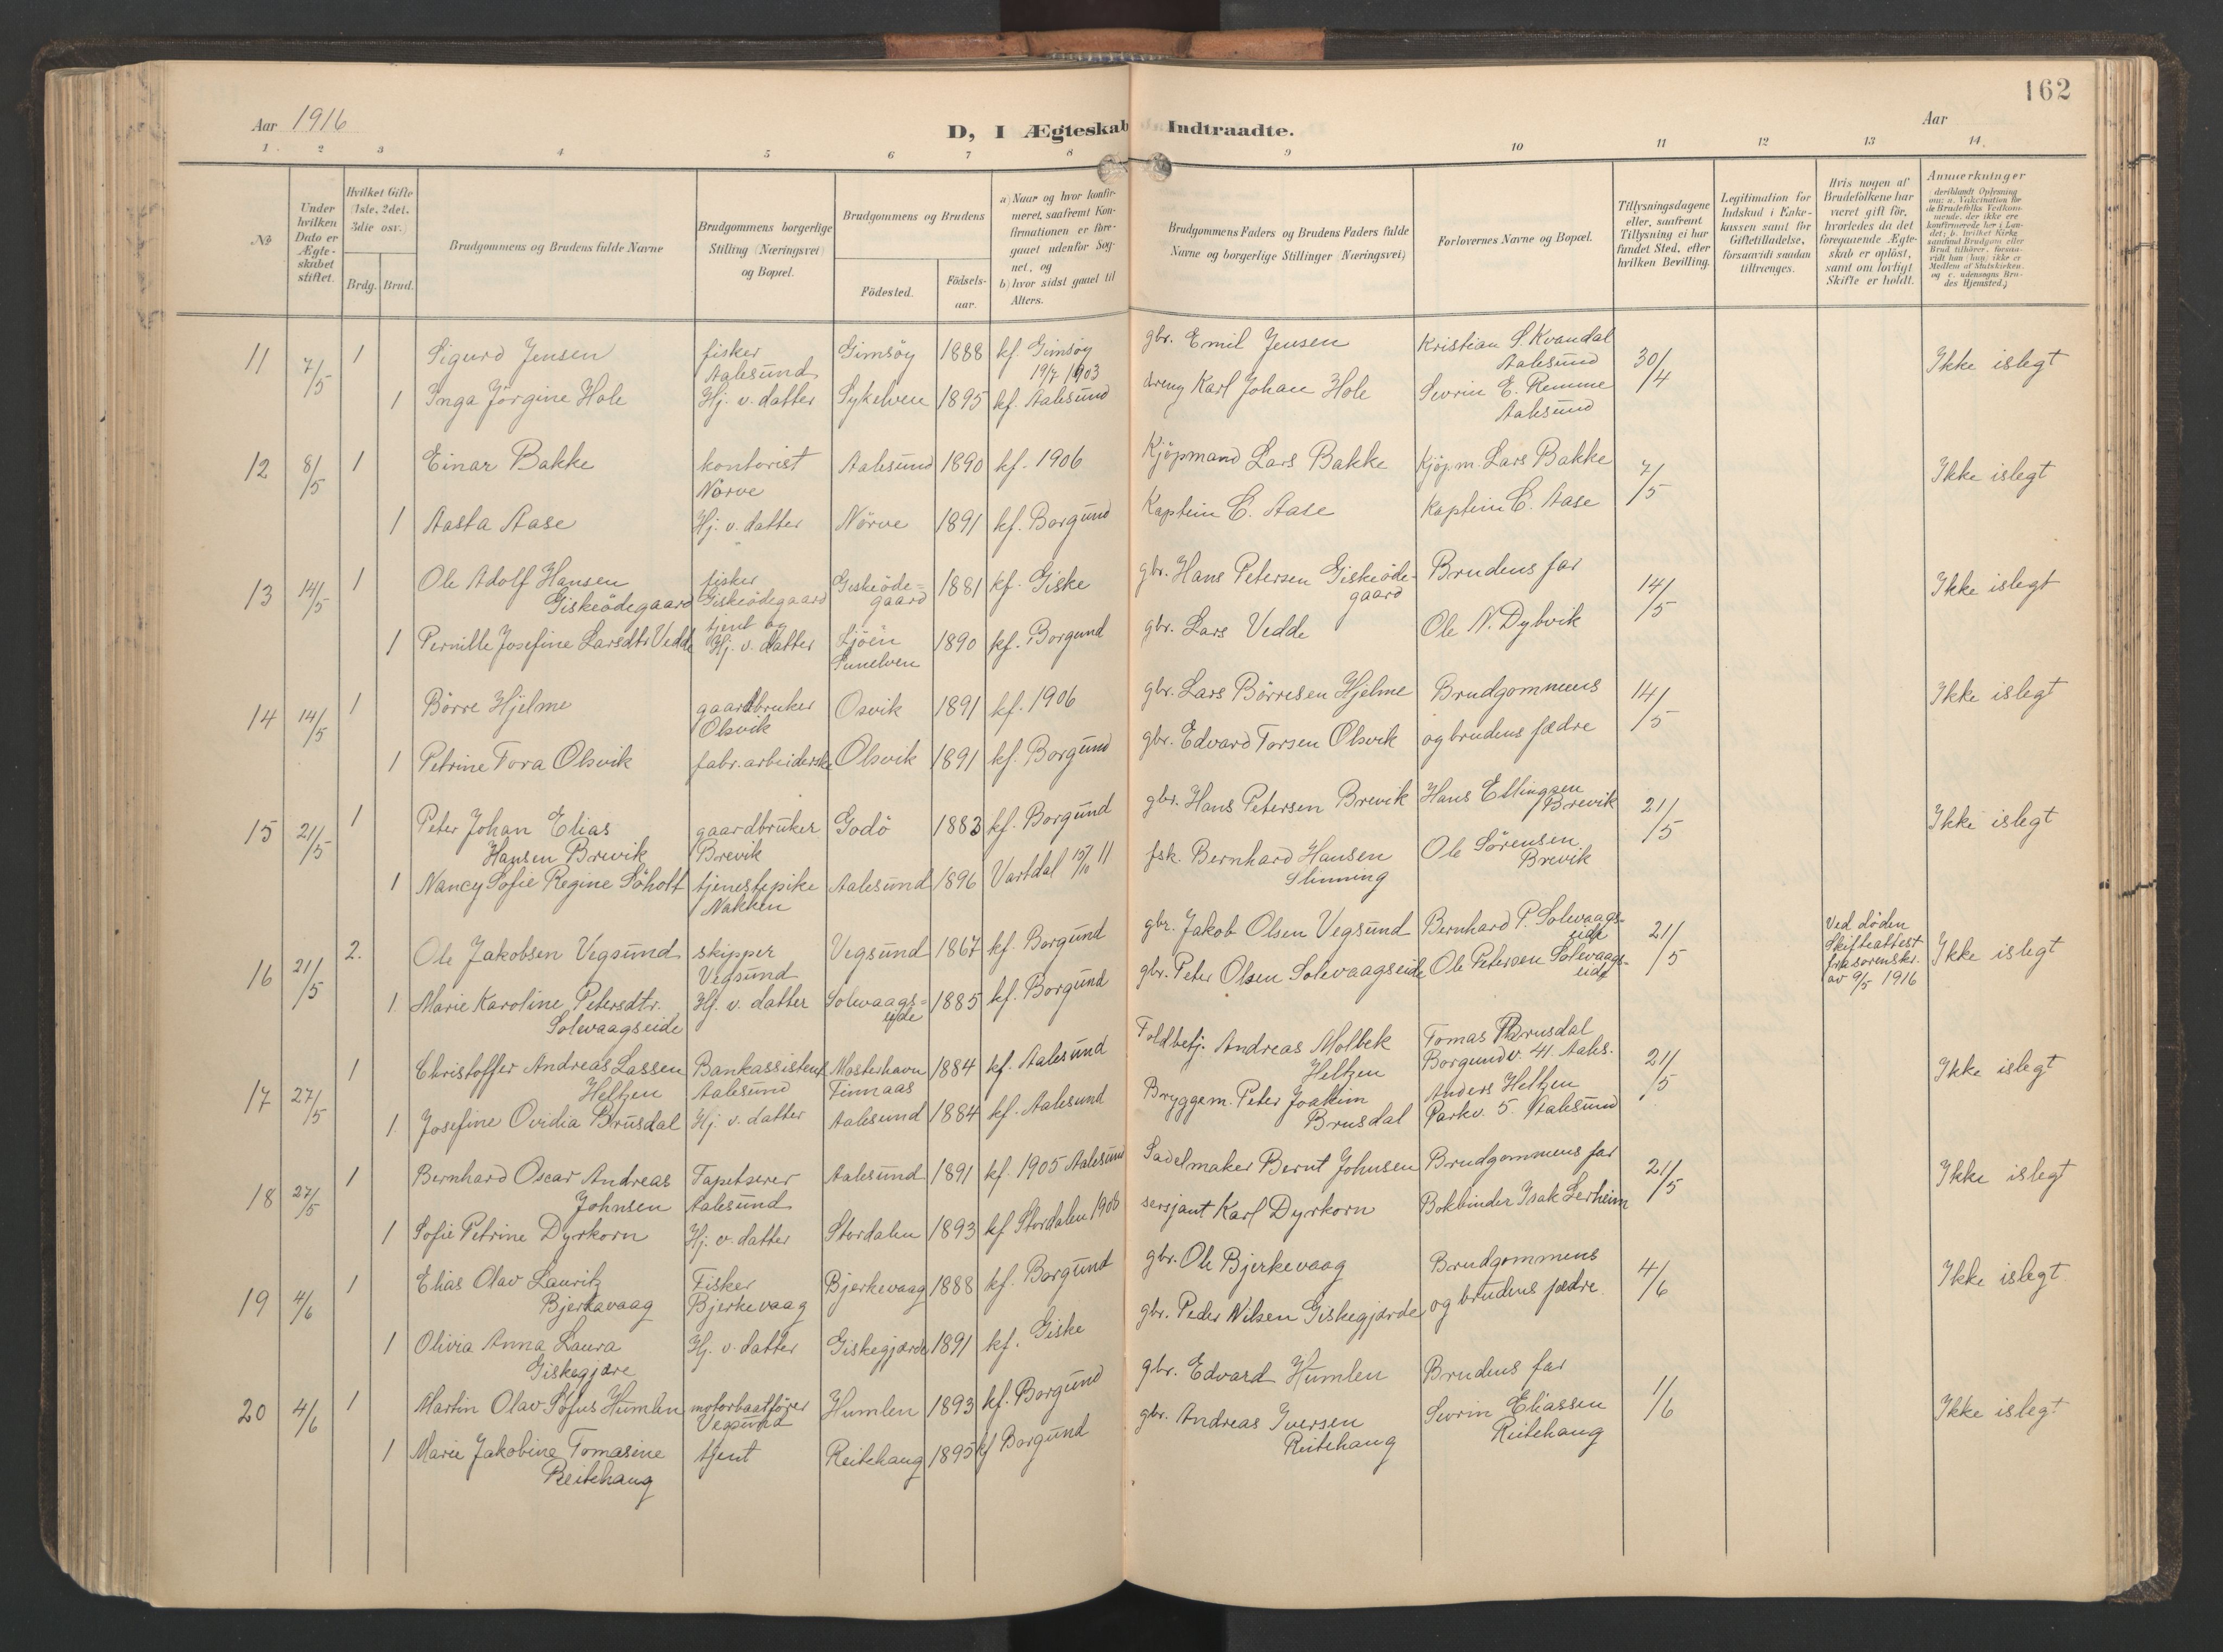 162
Aar 1916
D, I Ægteskab Indtraadte.
Aar
1 2 3 4 5 6 7 8 9 10 11 12 13 14
№
Under hvilken Dato er Ægte-skabet stiftet.
Hvilket Gifte (1ste, 2det, 3die osv.)
Brdg. Brud.
Brudgommens og Brudens fulde Navne
Brudgommens borgerlige Stilling (Næringsvei) og Bopæl.
Brudgommens og Brudens
Födested.
Födsels-aar.
a) Naar og hvor konfir-meret, saafremt Kon-firmationen er fore-gaaet udenfor Sog-net, og
b) hvor sidst gaaet til Alters.
Brudgommens Faders og Brudens Faders fulde Navne og borgerlige Stillinger (Næringsvei)
Forlovernes Navne og Bopæl.
Tillysningsdagene eller, saafremt Tillysning ei har fundet Sted, efter hvilken Bevilling.
Legitimation for Indskud i Enke-kassen samt for Giftetilladelse, forsaavidt saadan tiltrænges.
Hvis nogen af Brudefolkene har været gift för, hvorledes da det foregaaende Ægte-skab er oplöst, samt om lovligt Skifte er holdt.
Anmerkninger
deriblandt Oplysning om: a. Vakcination for de Brudefolks Vedkom-mende, der ikke ere konfirmerede her i Lan-det; b. hvilket Kirke-samfund Brudgom eller Brud tilhörer, forsaa-vidt han (hun) ikke er Medlem af Statskirken, og c. udensogns Bru-des Hjemsted.
11 7/5 1 Sigurd Jensen fisker Aalesund Gimsöy 1888 kf. Gimsöy 19/7 1903 gbr. Emil Jensen Kristian S. Kvandal Aalesund 30/4 Ikke islegt
1 Inga Jörgine Hole Hj. v. datter Sykelven 1895 kf. Aalesund dreng Karl Johan Hole Sevrin E. Remme Aalesund
12 8/5 1 Einar Bakke kontorist Nörve Aalesund 1890 kf. 1906 Kjöpmand Lars Bakke Kjöp.m. Lars Bakke 7/5 Ikke islegt
1 Aasta Aase Hj. v. datter " Nörve 1891 kf. Borgund Kaptein C. Aase Kaptein C. Aase
13 14/5 1 Ole Adolf Hansen Giskeödegaard fisker Giskeödegaard Giskeöde=gaard 1881 kf. Giske gbr. Hans Petersen Giskeöde-gaard Brudens far 14/5 Ikke islegt
1 Pernille Josefine Larsdtr Vedde tjent og Hj. v. datter Ljöen Sunelven 1890 kf. Borgund gbr. Lars Vedde Ole N. Dybvik
14 14/5 1 Börre Hjelme gaardbruker Olsvik Osvik 1891 kf. 1906 gbr. Lars Börresen Hjelme Brudgommens 14/5 Ikke islegt
1 Petrine Tora Olsvik fabr. arbeiderske Olsvik 1891 kf. Borgund gbr. Edvard Torsen Olsvik og brudens fædre
15 21/5 1 Peter Johan Elias Hansen Brevik gaardbruker Brevik Godö 1883 kf. Borgund gbr. Hans Petersen Brevik Hans Ellingsen Brevik 21/5 Ikke islegt
1 Nancy Sofie Regine Söholt tjenestepike Nakken Aalesund 1896 Vartdal 15/10 11 fsk. Bernhard Hansen Slinning Ole Sörensen Brevik
16 21/5 2. Ole Jakobsen Vegsund skipper Vegsund Vegsund 1867 kf. Borgund gbr. Jakob Olsen Vegsund Bernhard P. Solevaags-eide 21/5 Ved döden Skifteattest fra sorenskr. av 9/5 1916 Ikke islegt
1. Marie Karoline Petersdtr. Solevaagseide Hj. v. datter Solevaags=eide 1885 kf. Borgund gbr. Peter Olsen Solevaagseide Ole Petersen Solevaags-eide
17 27/5 1 Christoffer Andreas Lassen Heltzen Bankassistent Aalesund Mosterhavn Finnaas 1884 kf. Aalesund Toldbetj. Andreas Molbek Heltzen Tomas Brusdal Borgundv. 41. Aales. 21/5 Ikke islegt
1. Josefine Ovidia Brusdal Hj. v. datter Aalesund 1884 kf. Aalesund Bryggem. Peter Joakim Brusdal Anders Heltzen Parkv. 5. Aalesund
18 27/5 1 Bernhard Oscar Andreas Johnsen Tapetserer Aalesund Aalesund 1891 kf. 1905 Aalesund Sadelmaker Bernt Johnsen Brudgommens far 21/5 Ikke islegt
1 Sofie Petrine Dyrkorn Hj. v. datter Stordalen 1893 kf Stordalen 1908 sersjant Karl Dyrkorn Bokbinder Isak Lerheim
19 4/6 1 Elias Olav Lauritz Bjerkavaag Fisker Bjerkevaag Bjerkevaag 1888 kf. Borgund gbr. Ole Bjerkevaag Brudgommens 4/6 Ikke islegt
1 Olivia Anna Laura Giskegjære Hj. v. datter Giskegjærde 1891 kf. Giske gbr. Peder Nilsen Giskegjærde og brudens fædre.
20 4/6 1 Martin Olav Sofus Humlen motorbaatförer Vegsund Humlen 1893 kf. Borgund gbr. Edvard Humlen Brudens far 1/6 Ikke islegt
1 Marie Jakobine Tomasine Reitehaug tjent Reitehaug 1895 kf Borgund gbr. Andreas Iversen Reitehaug Sevrin Eliassen Reitehaug